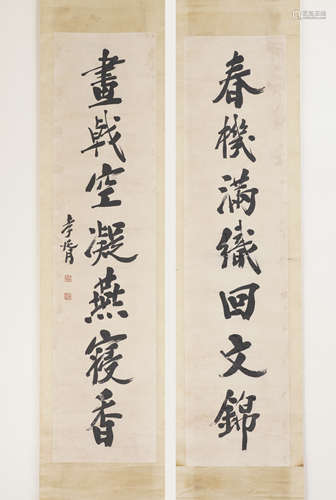 春機滿織回文錦
畫戟空凝燕寢香
孝胥